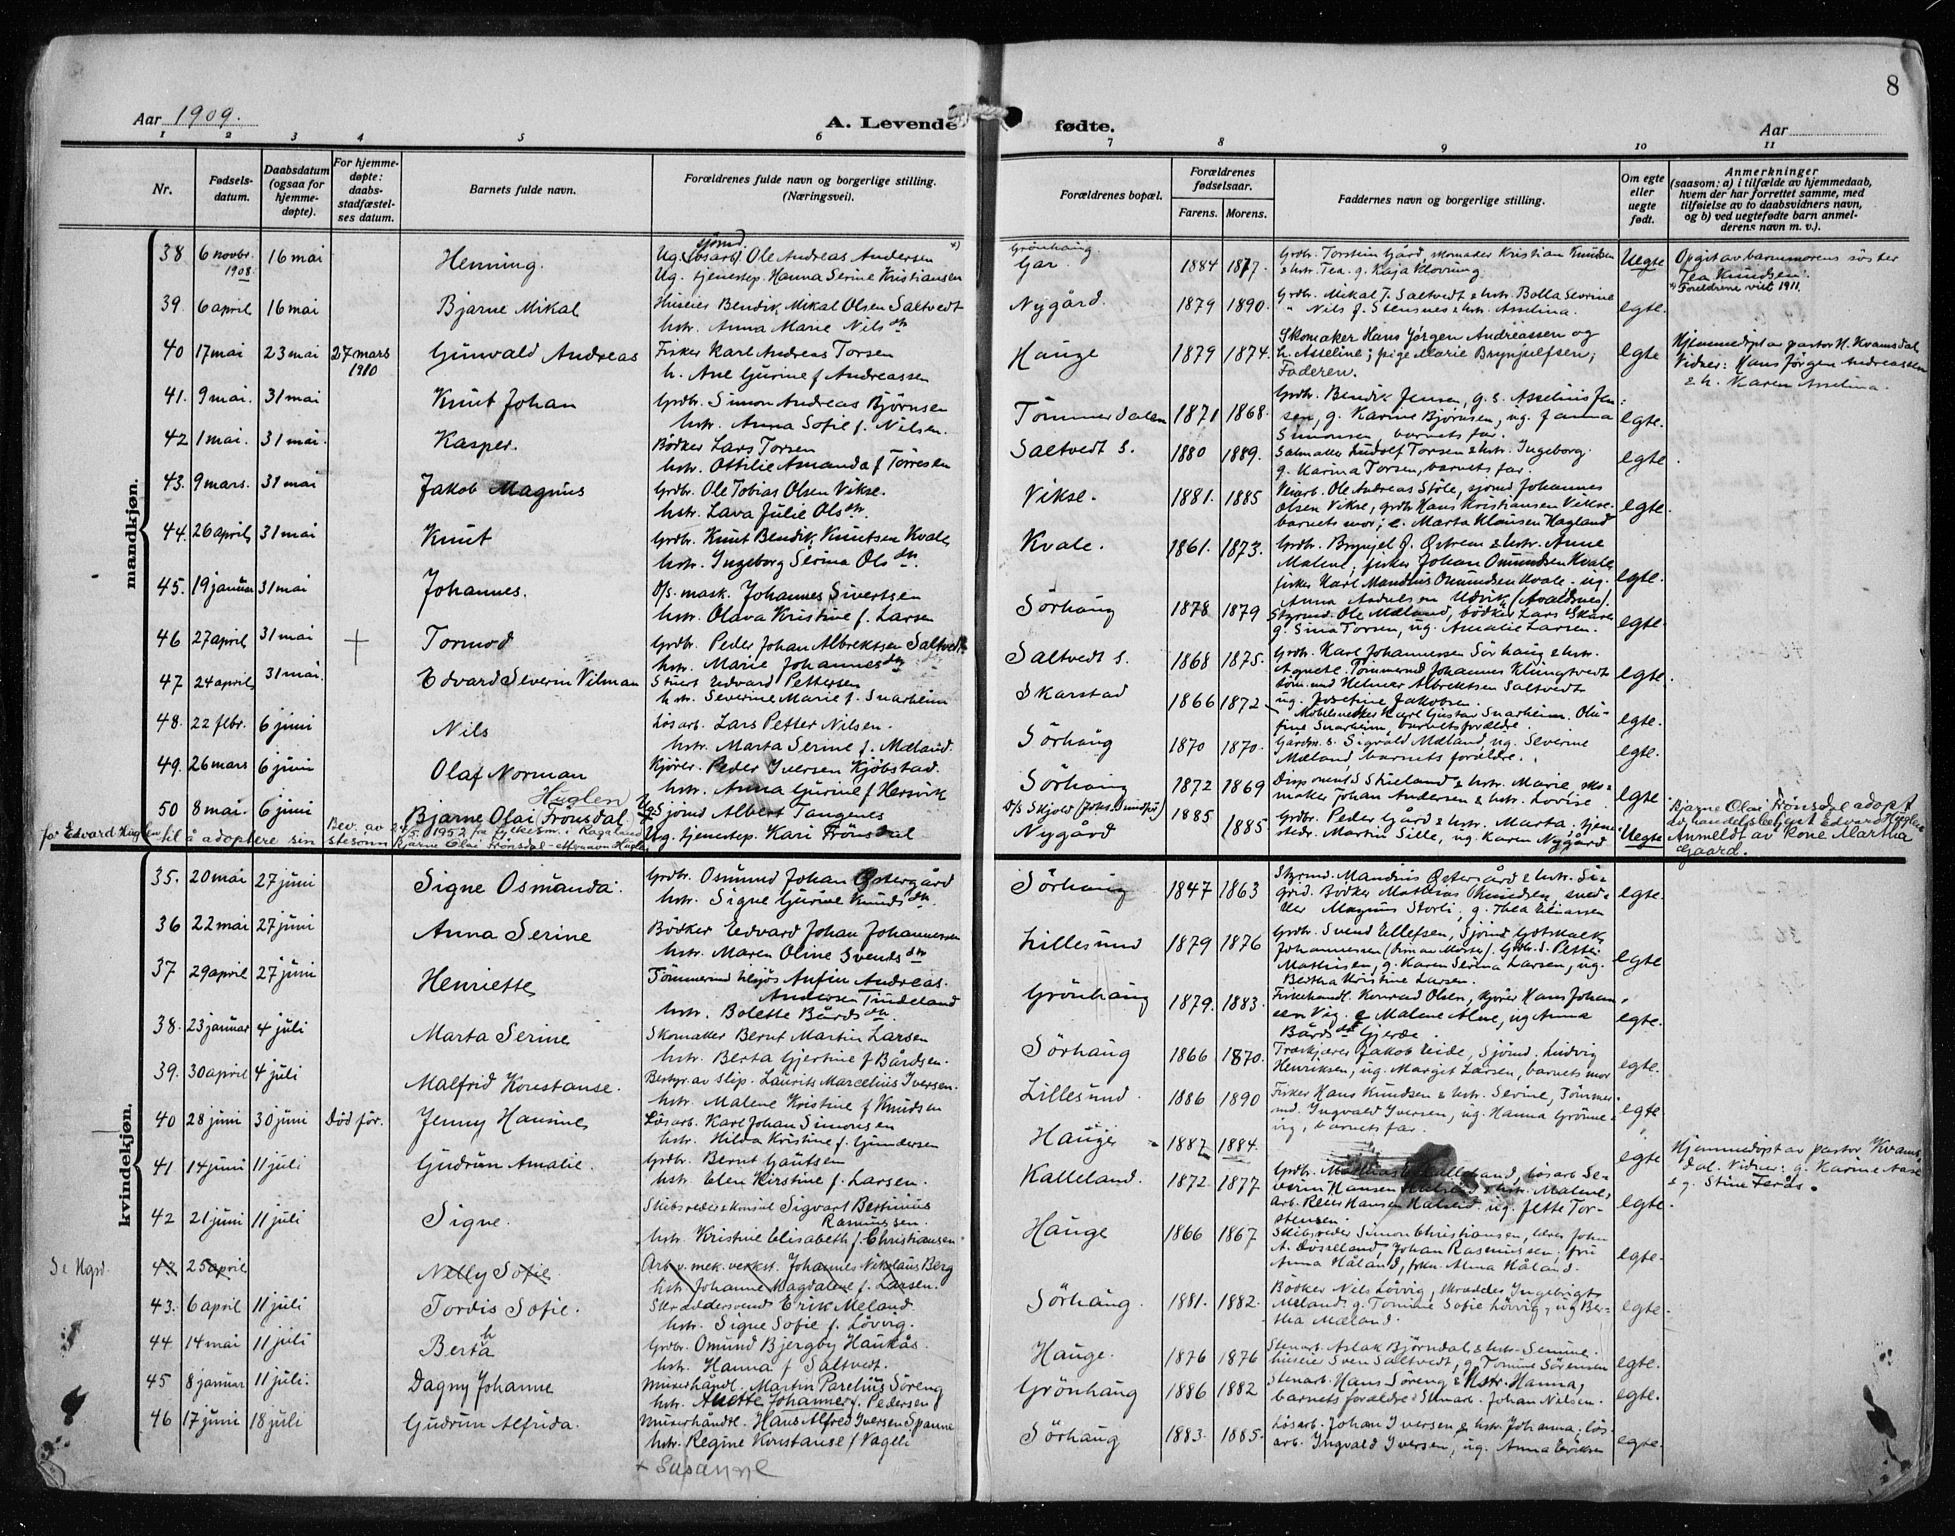 8
Aar 1909.
A. Levende fødte.
Aar
1 2 3 4 5 6 7 8 9 10 11
Nr.
Fødsels-
datum.
Daabsdatum
(ogsaa for
hjemme-
døpte).
For hjemme-
døpte:
daabs-
stadfæstel-
ses datum.
Barnets fulde navn.
Forældrenes fulde navn og borgerlige stilling.
(Næringsvei).
Forældrenes bopæl.
Forældrenes
fødselsaar.
Farens. Morens.
Faddernes navn og borgerlige stilling.
Om egte
eller
uegte
født.
Anmerkninger
(saasom: a) i tilfælde av hjemmedaab,
hvem der har forrettet samme, med
tilføielse av to daabsvidners navn,
og b) ved uegtefødte barn anmel-
derens navn m. v.).
mandkjøn.
38 6 novbr. 1908. 16 mai Henning. Ug. løsarb. Ole Andreas Andersen
sjømd
Ug. tjenestep. Hanna Serine Kristiansen
Grönhaug Gar 1884 1877. Grdbr. Torstein Gård, skomaker Kristian Knudsen
& hstr. Tea. g. Kaja Klovning Uegte Opgit av barnmorens søster
Tea Knudsen.
x) Foreldrene viet 1911.
39. 6 april 16 mai Bjarne Mikal Huseier Bendik Mikal Olsen Saltvedt
hstr. Anna Marie Nilsdtr
Nygård. 1879 1890. Grdbr. Mikal T. Saltvedt & hstr. Bolla Severine
" Nils J. Stensnes & hstr. Asselina. egte.
40 17 mai 23 mai 27 mars 1910 Gunvald Andreas Fisker Karl Andreas Torsen
h. Ane Gurine f Andreassen
Hauge 1879 1874. Skomaker Hans Jørgen Andreassen og
h. Asseline; pige Marie Brynjulfsen;
Faderen. egte Hjemmedøpt av pastor H. Kvamsdal
Vidner: Hans Jørgen Andreassen
& h. Karen Asselina.
41. 9 mai. 31 mai Knut Johan Grdbr. Simon Andreas Bjørnsen
hstr. Anna Sofie f. Nilsen.
Tömmerdalen 1871 1868. Grdbr. Bendik Jensen, g. s. Asselius Jen-
sen, g. Karine Bjørnsen, ug. Janna
Simonsen barnets far. egte.
42 1 mai. 31 mai. Kasper. Bødker Lars Torsen
hstr. Ottilie Amanda f Torresen
Saltvedt s. 1880 1889. Salmaker Ludolf Torsen & hstr. Ingeborg.
g. Karina Torsen, barnets far. egte.
43. 9 mars. 31 mai Jakob Magnus Grdbr. Ole Tobias Olsen Vikse.
hstr. Lava Julie Olsdtr.
Vikse. 1881. 1885 Veiarb. Ole Andreas Stöle, sjömd Johannes
Olsen Vikse, grdbr Hans Kristiansen Vikse.
barnets mor; e. Marta Klausen Hagland egte.
44. 26 april 31 mai Knut Grdbr. Knut Bendik Knutsen Kvale
hstr. Ingeborg Serina Olsdtr.
Kvale. 1861. 1873. Grdbr. Brynjel J. Østrem & hstr. Anne
Malene, fisker Johan Omundsen Kvale,
fisker Karl Mandius Omundsen Kvale. ug.
Anna Andersen Udvik (Avaldsnes). egte.
45. 19 januar 31 mai Johannes. D/s. mask. Johannes Sivertsen
hstr. Olava Kristine f. Larsen
Sörhaug 1878 1879 Styrmd. Ole Mæland, bödker Lars Skåre
g. Sina Torsen, ug. Amalie Larsen. egte.
46 27 april 31 mai + Tormod Grdbr. Peder Johan Albrektsen Saltvedt
hstr. Marie Johannesdtr
Saltvedt s. 1868 1875. Grdbr. Karl Johannessen Sörhaug & hstr.
Agnete. Tømmermd Johannes Klungtvedt
töm.md Helmer Albrektsen Saltvedt
ug. Josefine Jakobsen. egte.
47 24 april 31 mai. Edvard Severin Vilman Stuert Edvard Pettersen
hstr. Severine Marie f. Snarheim
Skarstad 1866 1872 Møbelsnedker Karl Gustav Snarheim. Olu-
fine Snarheim, barnets forældre. egte.
48. 22 febr. 6 juni Nils Løsarb. Lars Petter Nilsen.
hstr. Marta Serine f. Mæland.
Sörhaug 1870 1870. Gårdm. s. Sigvald Mæland, ug. Severine
Mæland barnets forældre. egte.
49. 26 mars 6 juni Olaf Norman Kjører. Peder Iversen Kjöbstad.
hstr. Anna Gurine f Hersvik
Sörhaug 1872 1869 Disponent S Stueland & hstr. Marie sko-
maker Johan Andersen & hstr. Lovise. egte.
50 8 mai. 6 juni Bjarne Olai (Frönsdal) Huglen Ug. Sjömd Albert Tangenes
Ug. tjenestep. Kari Frönsdal
D/s Skjold (Johs. Smedsv.) Nygård 1885 1885 Grdbr. Peder Gård & hstr. Marta. tjene-
stedr. Martin Lille, ug. Karen Nygård Uegte Bjarne Olai Frönsdal adopt.
av handelsbetjent Edvard Huglen
Anmeldt av Kone Martha
Gaard.
for Edvard Huglen til å adoptere sin stesønn Bjarne Olai Frönsdal - etternavn Huglen
Bev. av 24/5 1952 fra fylkesm. i Rogaland
kvindekjøn.
35. 20 mai 27 juni Signe Osmanda. Grdbr. Osmund Johan Østergård
hstr. Signe Gurine Knudsdtr.
Sörhaug 1847 1863 Styrmd. Mandius Østergård & hstr. Si-
grid. Bödker Mathias Knudsen, smed-
ler Magnus Storli, g. Thea Eliassen egte.
36 22 mai 27 juni Anna Serine Bödker Edvard Johan Johannessen
hstr. Maren Oline Svendsdtr
Lillesund 1879 1876 Grdbr. Svend Ellefsen, Sjömd Gotskalk
Johannessen (bror av Morte). Grdbr. S. Petter
Mathisen, g. Karen Serina Larsen, ug.
Bertha Kristine Larsen. egte
37 29 april 27 juni Henriette Tömmermd tilsjös Anfin Andreas
Andersen Tindeland
hstr. Bolette Bårdsdtr.
Grönhaug 1879. 1883. Fiskehandl. Konrad Olsen, kjører Hans Johan-
sen Vig. g Malene Alne, ug Anna
Bårdsdtr Gjerde egte.
38. 23 januar 4 juli Marta Serine Skomaker Bernt Martin Larsen
hstr. Berta Gjertine f Bårdsen.
Sörhaug 1866 1870. Trækjører Jakob Eide, Sjömd. Ludvig
Henriksen, ug. Margit Larsen, barnets mor egte.
39. 30 april 4 juli Malfrid Konstanse. Bestyr. av slip. Laurits Marcelius Iversen.
hstr. Malene Kristine f Knudsen
Lillesund. 1886 1890 Fisker Hans Knudsen & hstr. Sevine, Tömmer
md. Ingvald Iversen, ug. Hanna Grönne-
vig, barnets far. egte,
40 28 juni 30 juni Død før. Jenny Hansine Løsarb. Karl Johan Simonsen
hstr. Hilda Kristine f. Gundersen
Hauge 1887 1884. egte Hjemmedöpt av pastor Kvams-
dal. Vidner: g. Karine Aase
& g. Stine Ferås.
41 14 juni 11 juli Gudrun Amalie. Grdbr. Bernt Gautsen
hstr. Elen Kirstine f. Larsen.
Kalleland. 1872. 1877 Grdbr. Mathias Kalleland, løsarb Se-
verin Hansen Halseid & hstr. Malene,
arb. Reier Hansen Halseid. ug. Jette Tor-
stensen. egte.
42 21 juni 11 juli Signe. Skibsreder & konsul Sigvart Bertinius
Rasmussen.
hstr. Kristine Elisabeth f. Christiansen
Hauge 1866 1867 Skibsreder Simon Christiansen, lærer John
A. Dosseland, Johan Rasmussen, fru
Anna Håland, frkn. Anna Håland. egte.
S. Hgsd. 43 25 april Nelly Sofie Arb. v. mek. verkst. Johannes Nikolaus Berg
hstr. Johanne Magdalene f. Larsen.
43. 6 april 11 juli Tordis Sofie. Skræddersvend Erik Meland.
hstr. Signe Sofie f. Lövvig.
Sörhaug. 1881. 1882. Bödker Nils Lövvig, skrædder Ingebrigt
Meland, g. Tomine Sofie Lövvig, ug Ber-
tha Mæland. egte.
44 14 mai 11 juli Bertha Grdbr. Omund Bjergby Haukås.
hstr. Hanna f Saltvedt.
Hauge. 1876 1876 Stenarb. Aslak Björndal & hstr. Semine.
huseier Sven Saltvedt, g. Tomine Sörensen egte.
45 8 januar 11 juli. Dagny Johanne Murerhåndl. Martin Parelius Söreng
hstr. Anette Johanne f. Pedersen
Grönhaug 1886 1882 Stenarb. Hans Söreng & hstr. Hanna,
barnets forældre & Stenarb. Johan Nilsen. egte.
46 17 juni 18 juli Gudrun Alfrida. Murerhåndl. Hans Alfred Iversen Spanne
hstr. Regine Konstanse f Vaglli
+ Susanne
Sörhaug 1883. 1885. Løsarb. Johan Iversen & hstr. Johanna, løs-
arb. Ingvald Iversen, ug. Anna Eriksen egte.